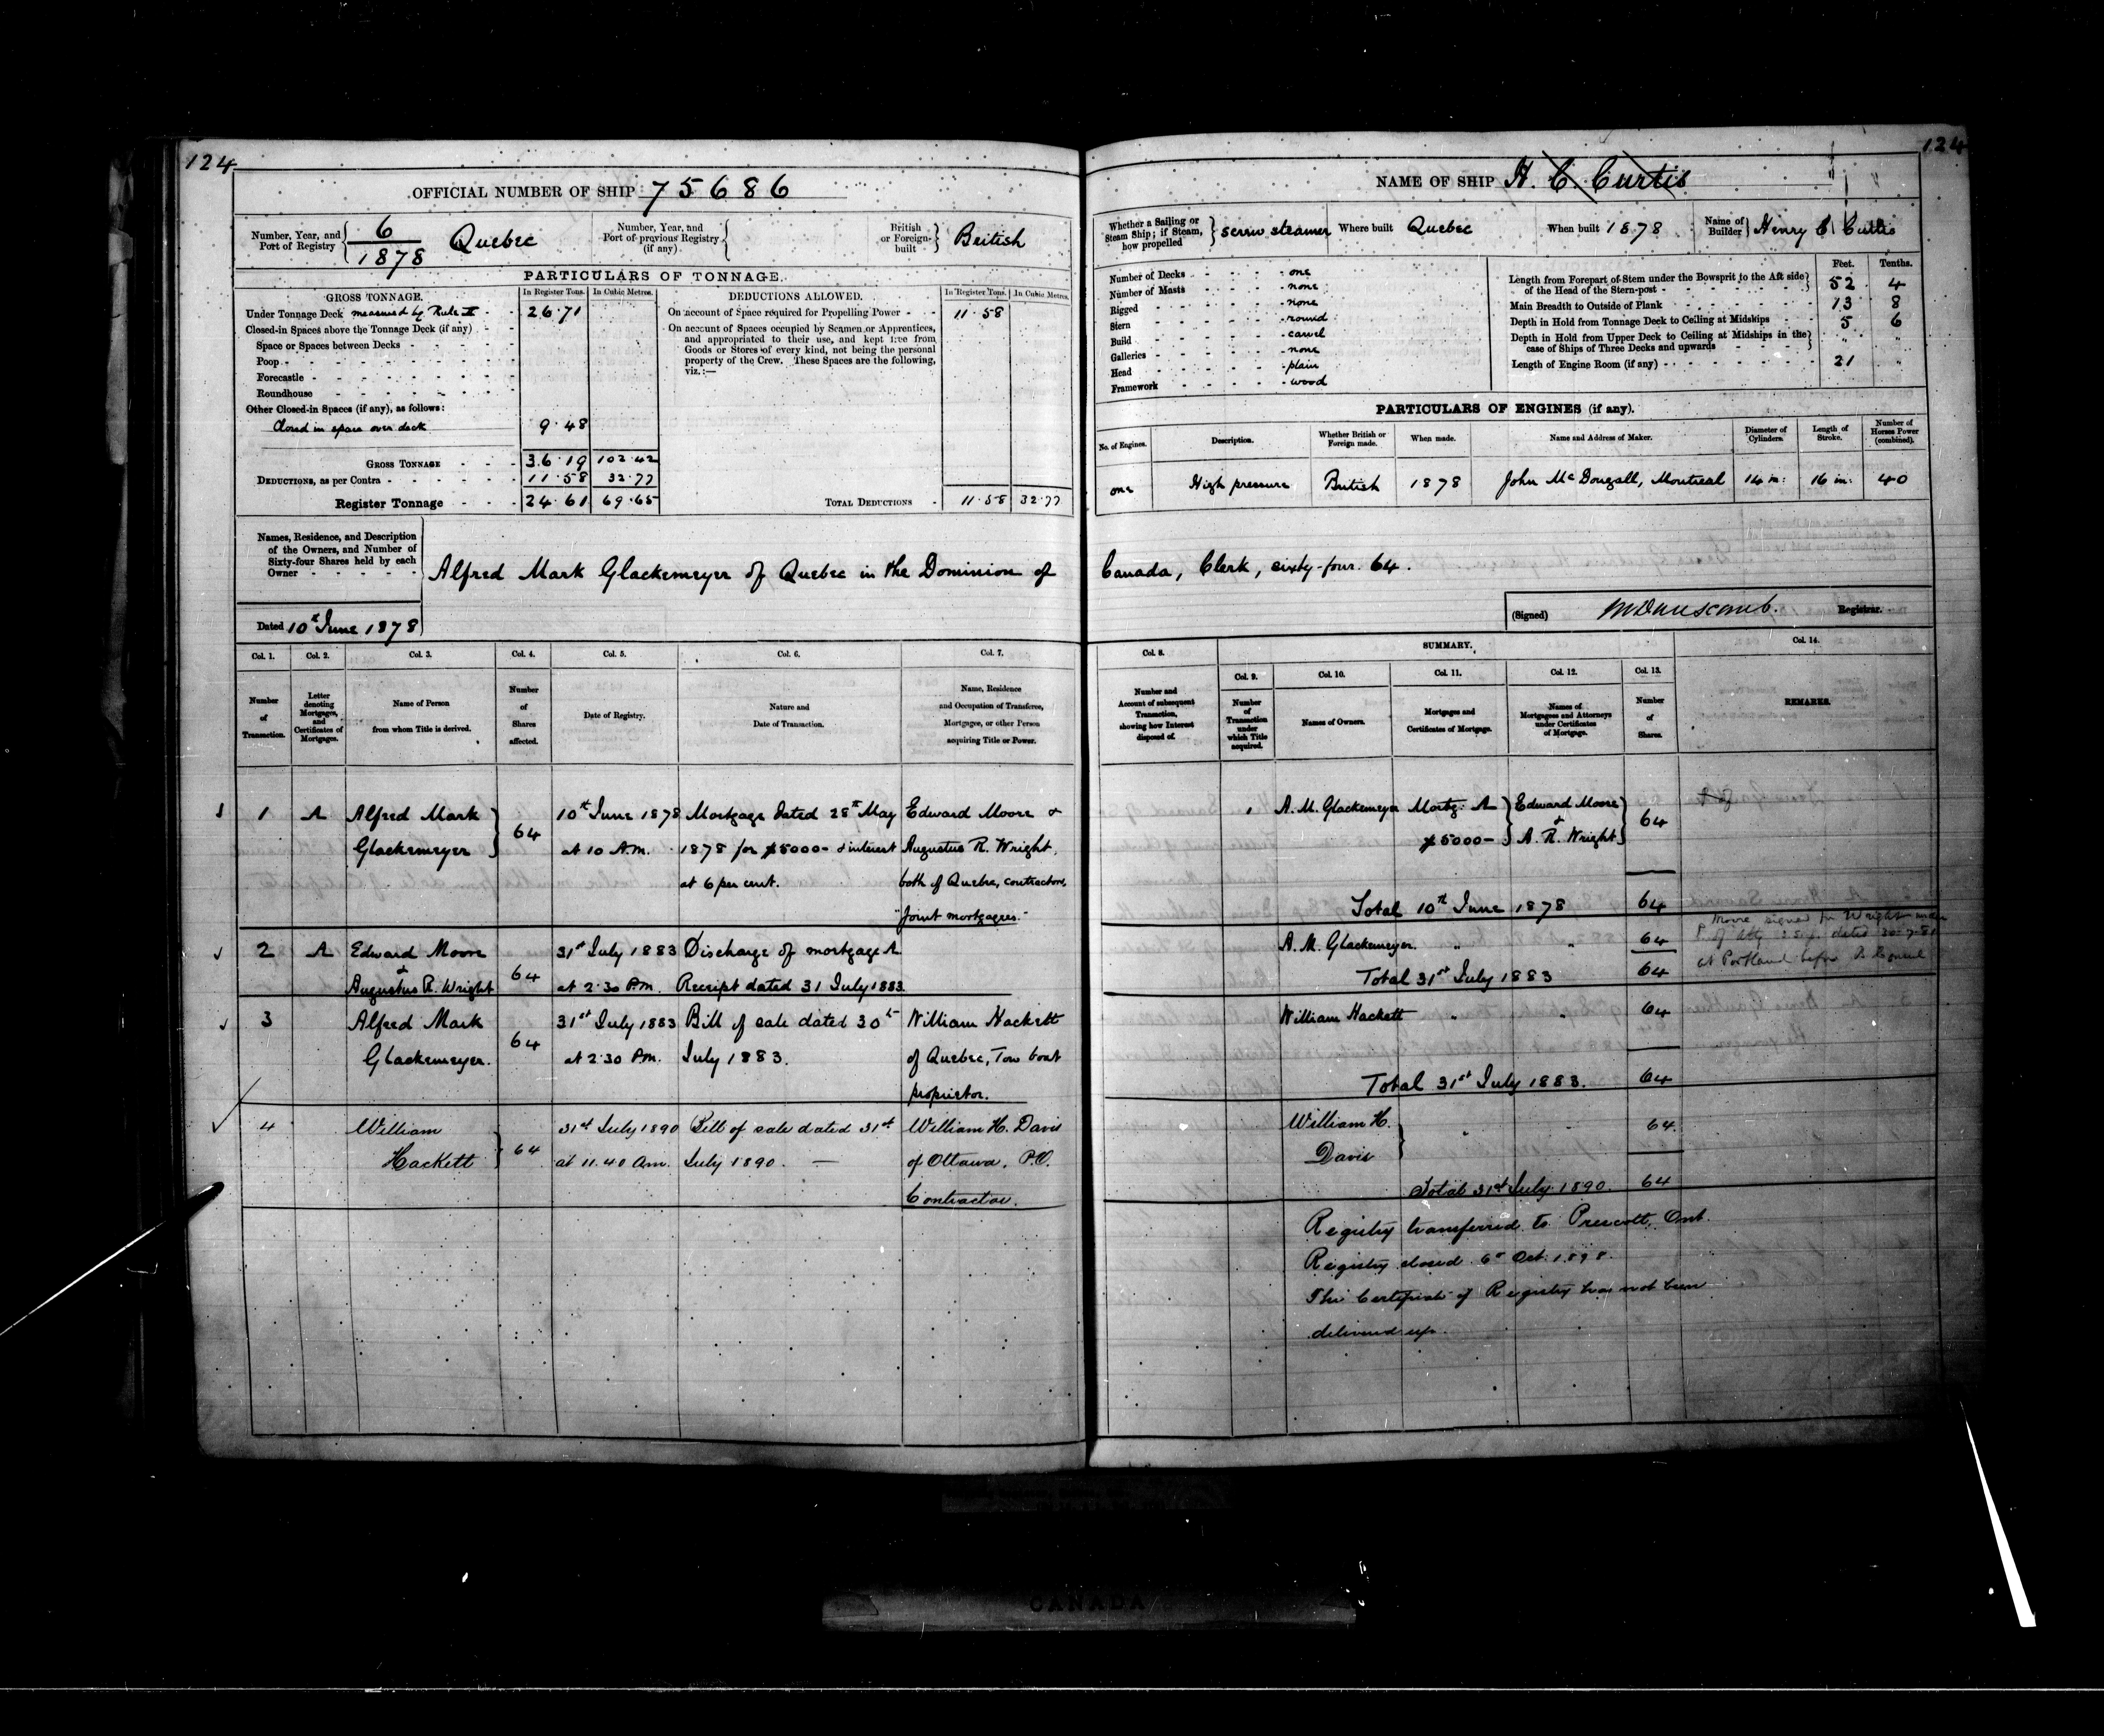 124
OFFICIAL NUMBER OF SHIP 75686
Number, Year, and Port of Registry 6/1878 Quebec
Number, Year, and Port of previous Registry (if any)
British or Foreign-built British
PARTICULARS OF TONNAGE.
GROSS TONNAGE. In Register Tons. In Cubic Metres.
Under Tonnage Deck measured by Rule II 26.71
Closed-in Spaces above the Tonnage Deck (if any)
Space or Spaces between Decks
Poop
Forecastle
Roundhouse
Other Closed-in Spaces (if any), as follows:
Closed in space over deck 9.48
GROSS TONNAGE 36.19 102.42
DEDUCTIONS, as per Contra 11.58 32.77
Register Tonnage 24.61 69.65
DEDUCTIONS ALLOWED. In Register Tons. In Cubic Metres.
On account of Space required for Propelling Power 11.58
On account of Spaces occupied by Seamen or Apprentices,
and appropriated to their use, and kept free from
Goods or Stores of every kind, not being the personal
property of the Crew. These Spaces are the following,
viz.:—
TOTAL DEDUCTIONS 11.58 32.77
Names, Residence, and Description
of the Owners, and Number of
Sixty-four Shares held by each
Owner
Alfred Mark Glackemeyer of Quebec in the Dominion of
Dated 10th June 1878
Col. 1. Col. 2. Col. 3. Col. 4. Col. 5. Col. 6. Col. 7.
Number of Transaction.
Letter denoting Mortgages, and Certificates of Mortgage.
Name of Person from whom Title is derived.
Number of Shares affected.
Date of Registry.
Nature and Date of Transaction.
Name, Residence and Occupation of Transferee, Mortgagee, or other Person acquiring Title or Power.
1 A Alfred Mark 64 10th June 1878 Mortgage dated 28th May Edward Moore &
Glackemeyer at 10 A.M. 1878 for $5000- & interest Augustus R. Wright,
at 6 per cent. both of Quebec, contractors,
"Joint mortgagees.
2 A Edward Moore 64 31st July 1883 Discharge of mortgage A
& Augustus R. Wright at 2.30 P.M. Receipt dated 31 July 1883
3 Alfred Mark 64 31st July 1883 Bill of sale dated 30th William Hackett
Glackemeyer. at 2.30 P.M. July 1883. of Quebec, Tow boat
proprietor.
4 William 64 31st July 1890 Bill of sale dated 31st William H. Davis
Hackett at 11.40 Am. July 1890. — of Ottawa, P.O.
Contractor.
124
NAME OF SHIP H. C. Curtis
Whether a Sailing or Steam Ship; if Steam, how propelled screw steamer
Where built Quebec
When built 1878
Name of Builder Henry C. Curtis
Number of Decks one
Number of Masts none
Rigged none
Stern round
Build carvel
Galleries none
Head plain
Framework wood
Feet. Tenths.
Length from Forepart of Stem under the Bowsprit to the Aft side of the Head of the Stern-post 52 4
Main Breadth to Outside of Plank 13 8
Depth in Hold from Tonnage Deck to Ceiling at Midships 5 6
Depth in Hold from Upper Deck to Ceiling at Midships in the case of Ships of Three Decks and upwards " "
Length of Engine Room (if any) 21 "
PARTICULARS OF ENGINES (if any).
No. of Engines. Description. Whether British or Foreign made. When made. Name and Address of Maker. Diameter of Cylinders. Length of Stroke. Number of Horses Power (combined).
one High pressure British 1878 John McDougall, Montreal 14 in: 16 in: 40
Canada, Clerk, sixty-four. 64.
(Signed) Registrar.
SUMMARY.
Col. 8. Col. 9. Col. 10. Col. 11. Col. 12. Col. 13. Col. 14.
Number and Account of subsequent Transaction, showing how Interest disposed of.
Number of Transaction under which Title acquired.
Names of Owners.
Mortgages and Certificates of Mortgage.
Names of Mortgagees and Attorneys under Certificates of Mortgage.
Number of Shares.
REMARKS.
1 A. M. Glackemeyer Mortg: A Edward Moore 64
$5000- & A. R. Wright
Total 10th June 1878 64
A. M. Glackemeyer. " " 64
Total 31st July 1883 64
Moore signed for Wright under
P. of Atty dated 30-7-81
at Portland before B. Consul
William Hackett " " 64
Total 31st July 1883. 64
William H. " " 64
Davis
Total 31st July 1890. 64
Registry transferred to Prescott, Ont.
Registry closed 6th Oct. 1898.
The Certificate of Registry has not been
delivered up.
CANADA